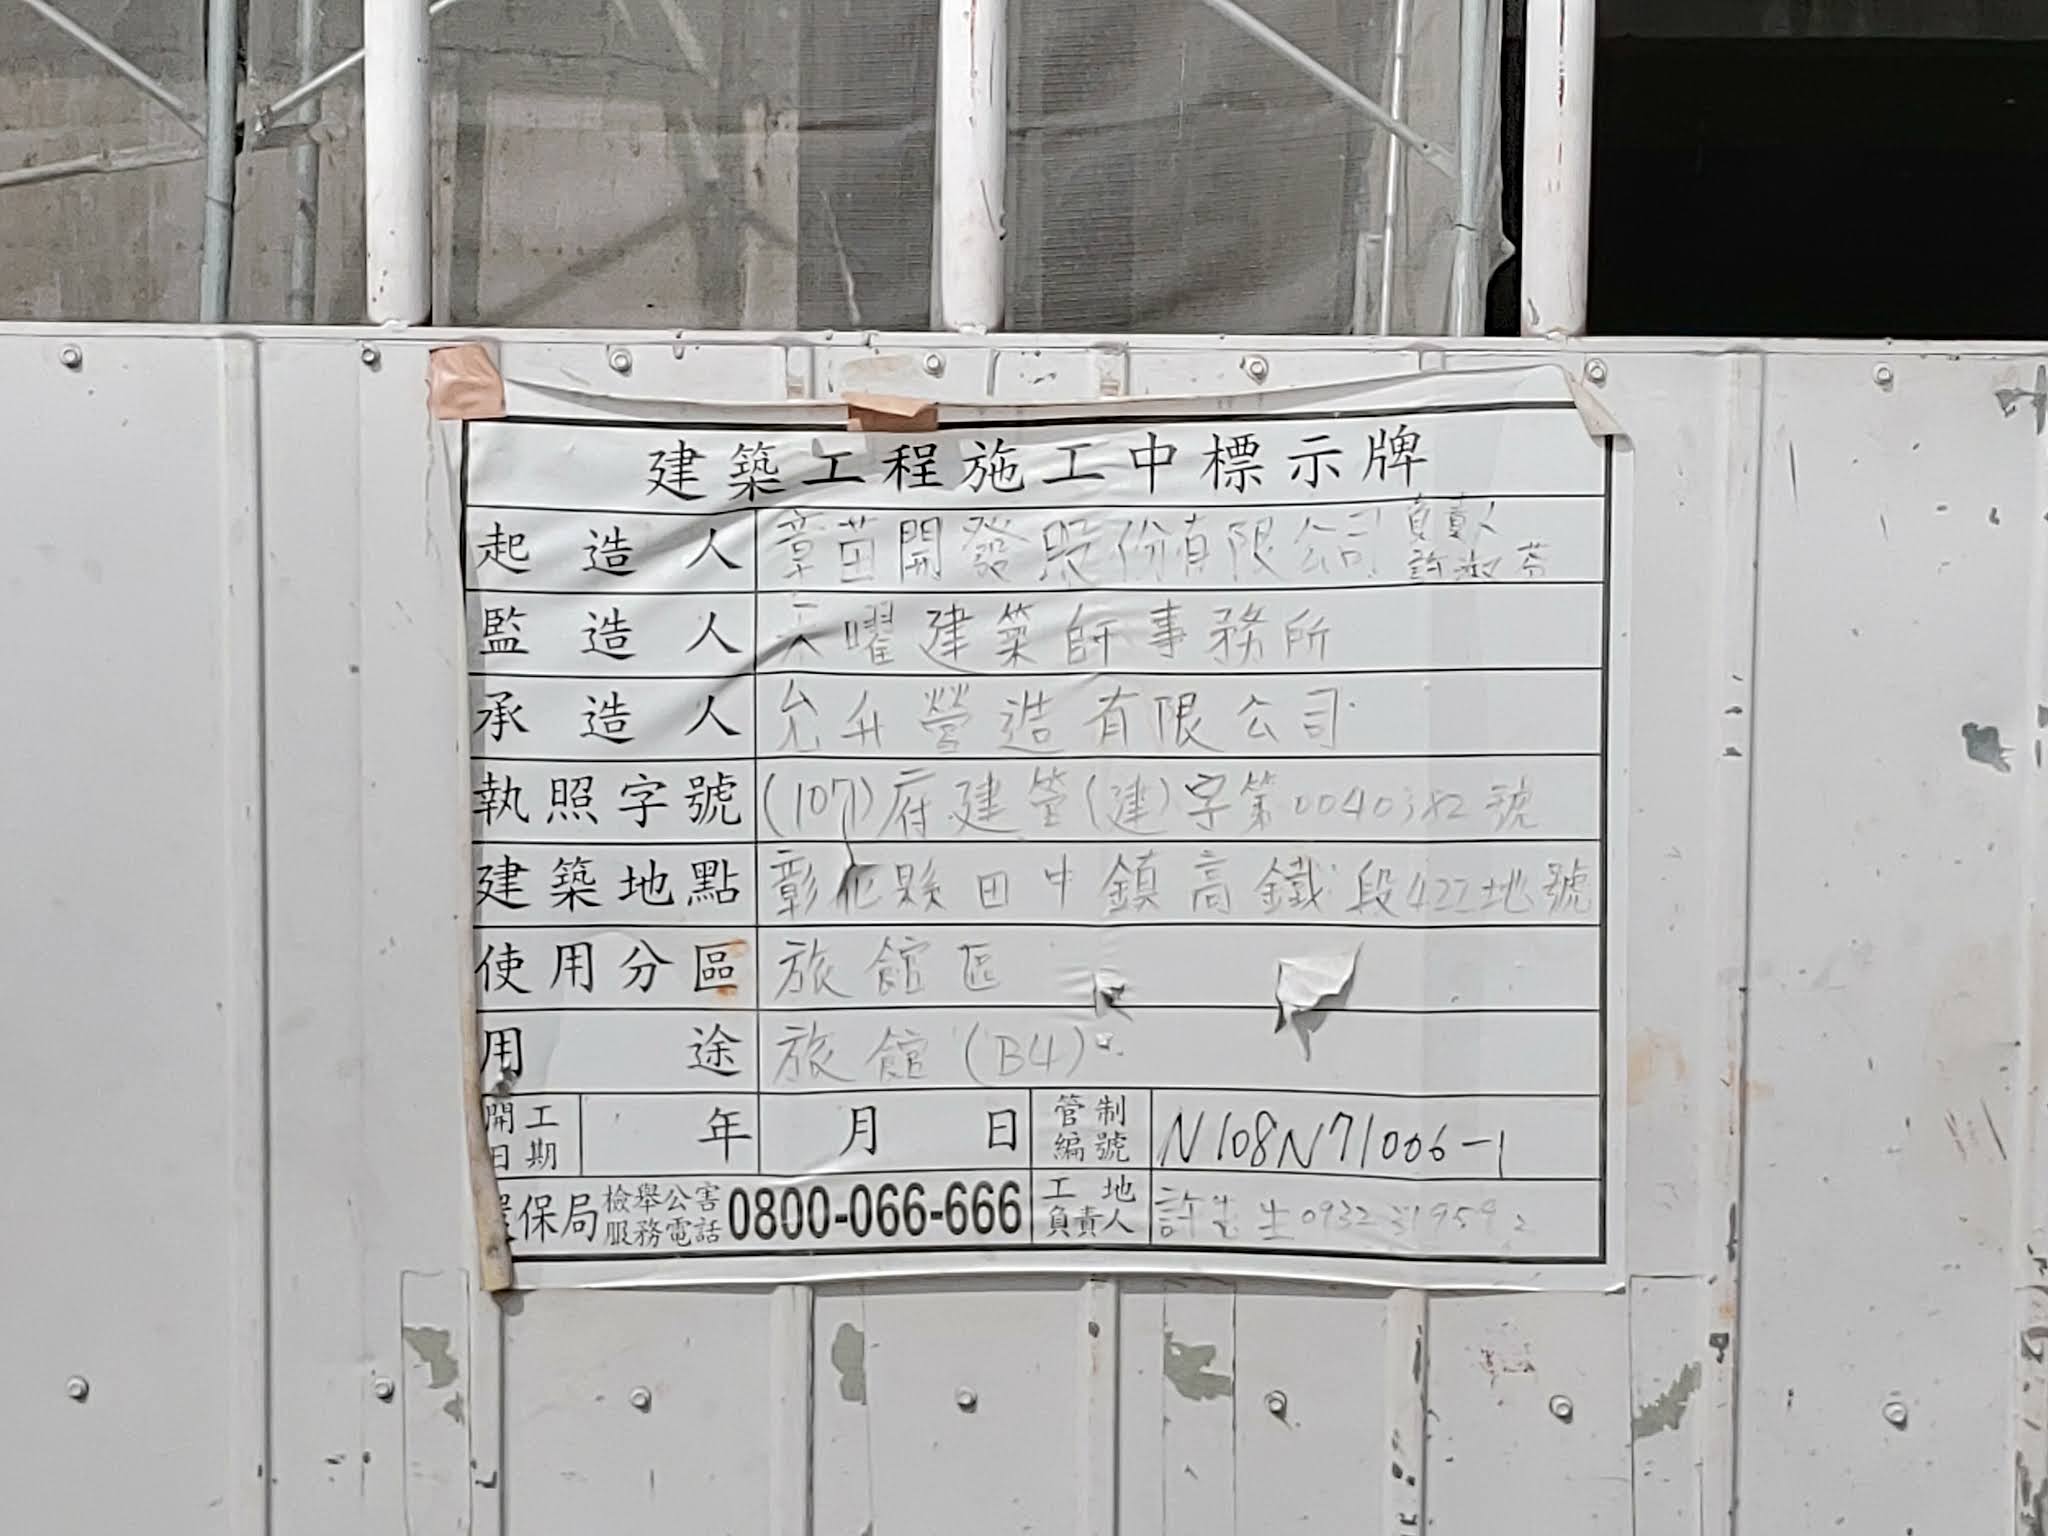 建築工程施工中標示牌
起造人 章苗開發股份有限公司 負責人
許淑芬
監造人 天曜建築師事務所
承造人 允升營造有限公司
執照字號 (107)府建管(建)字第0040382號
建築地點 彰化縣田中鎮高鐵段422地號
使用分區 旅館區
用途 旅館(B4)
開工日期 年 月 日 管制編號 N108N71006-1
環保局 檢舉公害服務電話 0800-066-666 工地負責人 許先生 0932